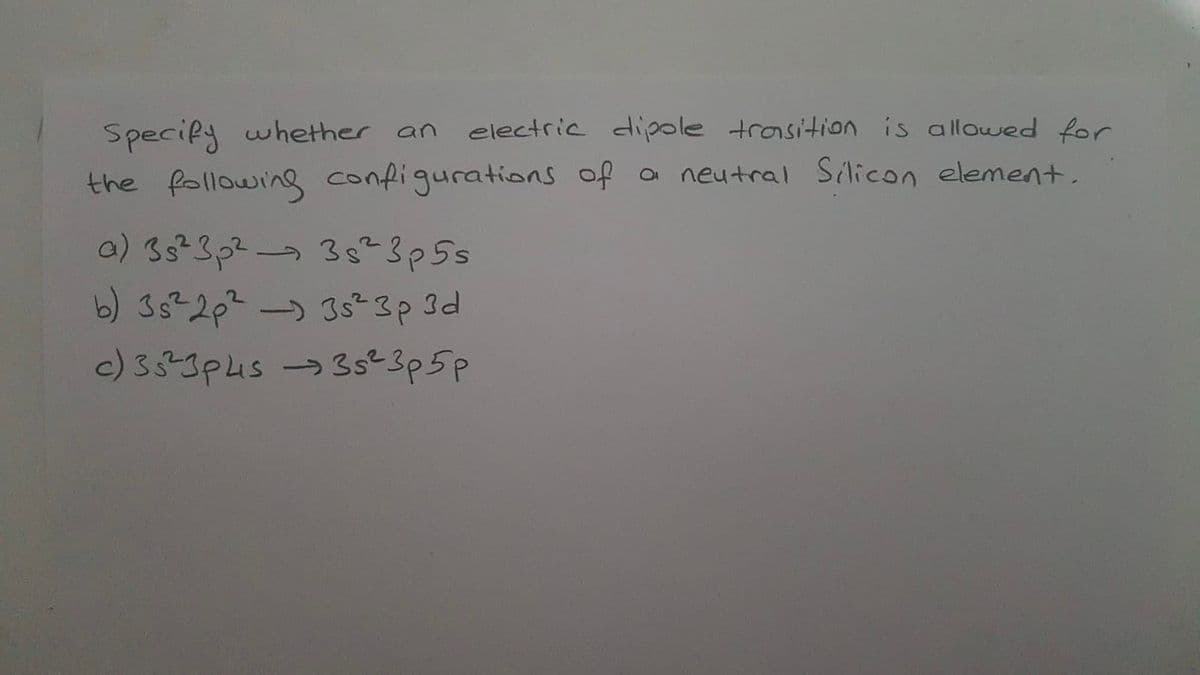 Specify whether an electric dipole trasition is allowed for
the following configurations of a neutral Silicon element.
a) 3s²3p² → 3s²3p5s
b) 3s²2p² → 3s²3p3d
c) 3s²3p4s → 3s²3p5p